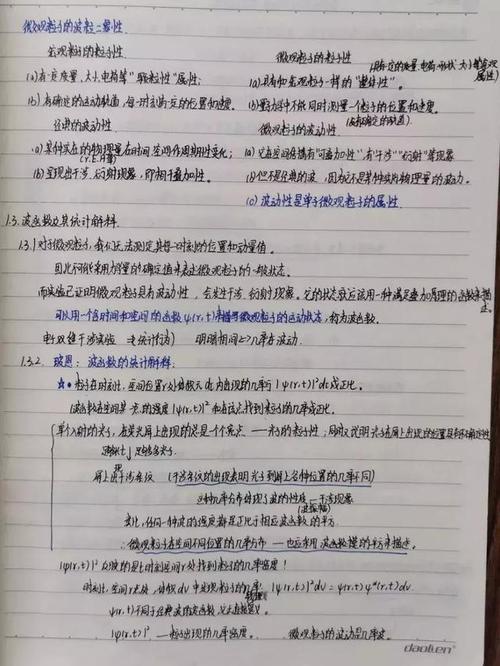 微观粒子的波粒二象性
宏观粒子的粒子性
微观粒子的粒子性
(具有一定的质量.电荷.形状.大小等客观属性)
(a)有一定质量.大小.电荷等"颗粒性"属性;
(a).具有和宏观粒子一样的"整体性"。
(b)有确定的运动轨道,每一时刻有一定的位置和速度。
(b)量子力学中不能同时测量一个粒子的位置和速度。
(没有确定的轨道)
经典的波动性
微观粒子的波动性
(a)某种实在的物理量在时间空间作周期性变化;
(a)它在空间传播有"可叠加性",有"干涉""衍射"等现象
(b)呈现出干涉.衍射现象,即相干叠加性。
(b)但不是经典的波,因为不是某种实际物理量的波动。
(c)波动性是单个微观粒子的属性
1.3.波函数及其统计解释
1.3.1对于微观粒子,我们无法测定其每一时刻的位置和动量值。
因此不能采用力学量的确定值来表述微观粒子的一般状态。
而实验已证明微观粒子具有波动性,会发生干涉.衍射现象。它的状态就应该用一种满足叠加原理的函数来描述。
可以用一个含时间和空间的函数ψ(r,t)来描写微观粒子的运动状态,称为波函数。
电子双缝干涉实验
明暗相间=>几率有波动.
1.3.2. 玻恩:波函数的统计解释:
粒子在时刻t,空间位置r处体积元dv内出现的几率与|ψ(r,t)|²dv成正比.
波函数在空间某一点的强度|ψ(r,t)|²和在该点找到粒子的几率成正比.
单个入射的光子,在荧光屏上出现的总是一个亮点 ——光子的粒子性;
屏上出现干涉条纹 (干涉条纹的出现表明光子到屏上各种位置的几率不同)
这种几率分布体现了波的性质—干涉现象
(波振幅)
变化,任何一种波的强度都是正比于相应波函数的平方.
∴微观粒子在空间不同位置的几率分布 —也应采用波函数模的平方来描述。
|ψ(r,t)|²反映的是t时刻空间r处找到粒子的几率密度!
时刻t,空间r处,体积dv中发现粒子的几率:|ψ(r,t)|²dv=ψ(r,t)ψ*(r,t)dv
ψ(r,t)不同于经典波的波函数,
|ψ(r,t)|² —粒子出现的几率密度。
微观粒子的波动是几率波.
daolien